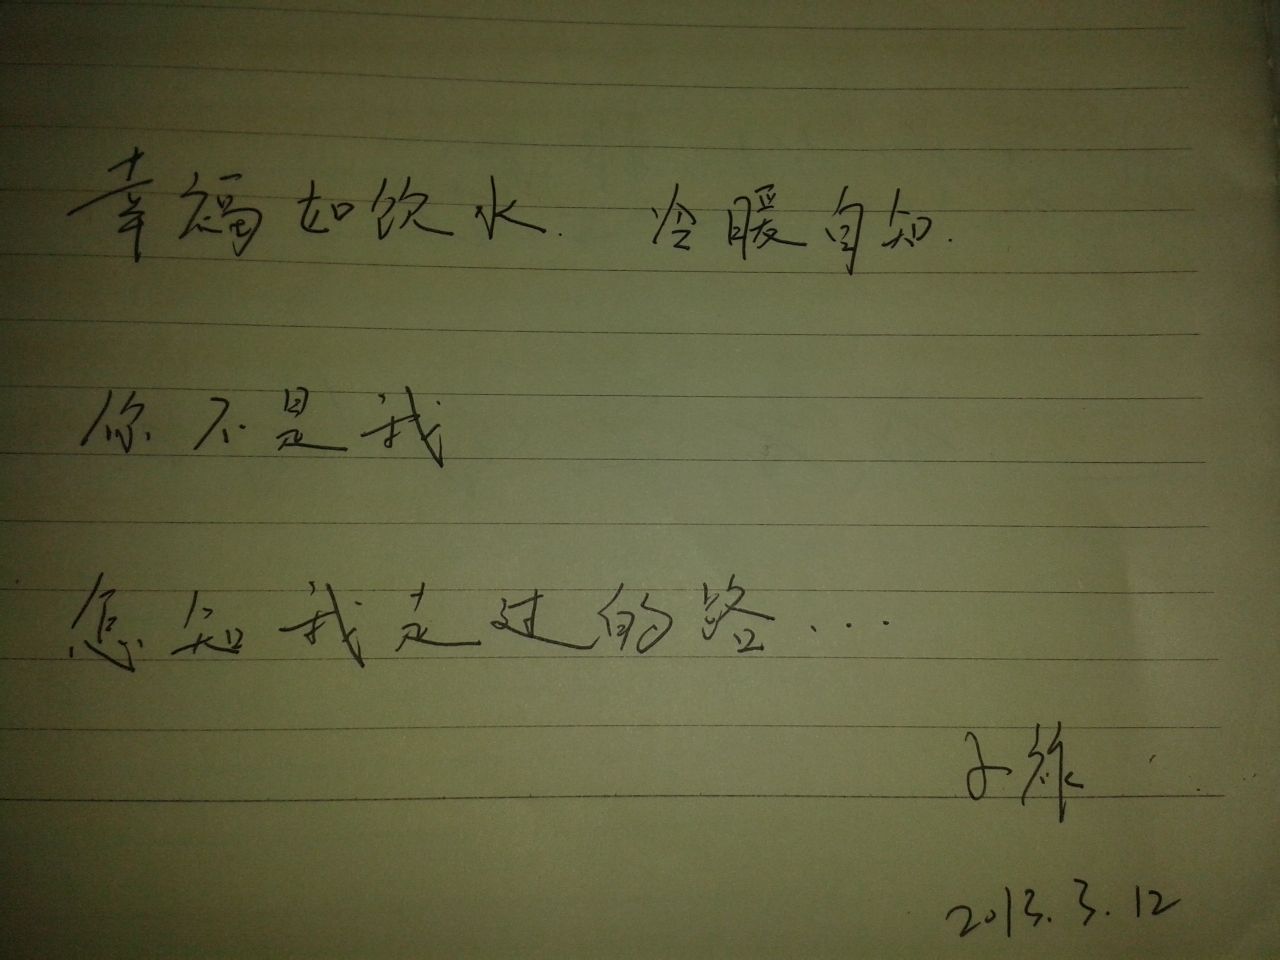 幸福如饮水. 冷暖自知.
你不是我
怎知我走过的路...
2013.3.12